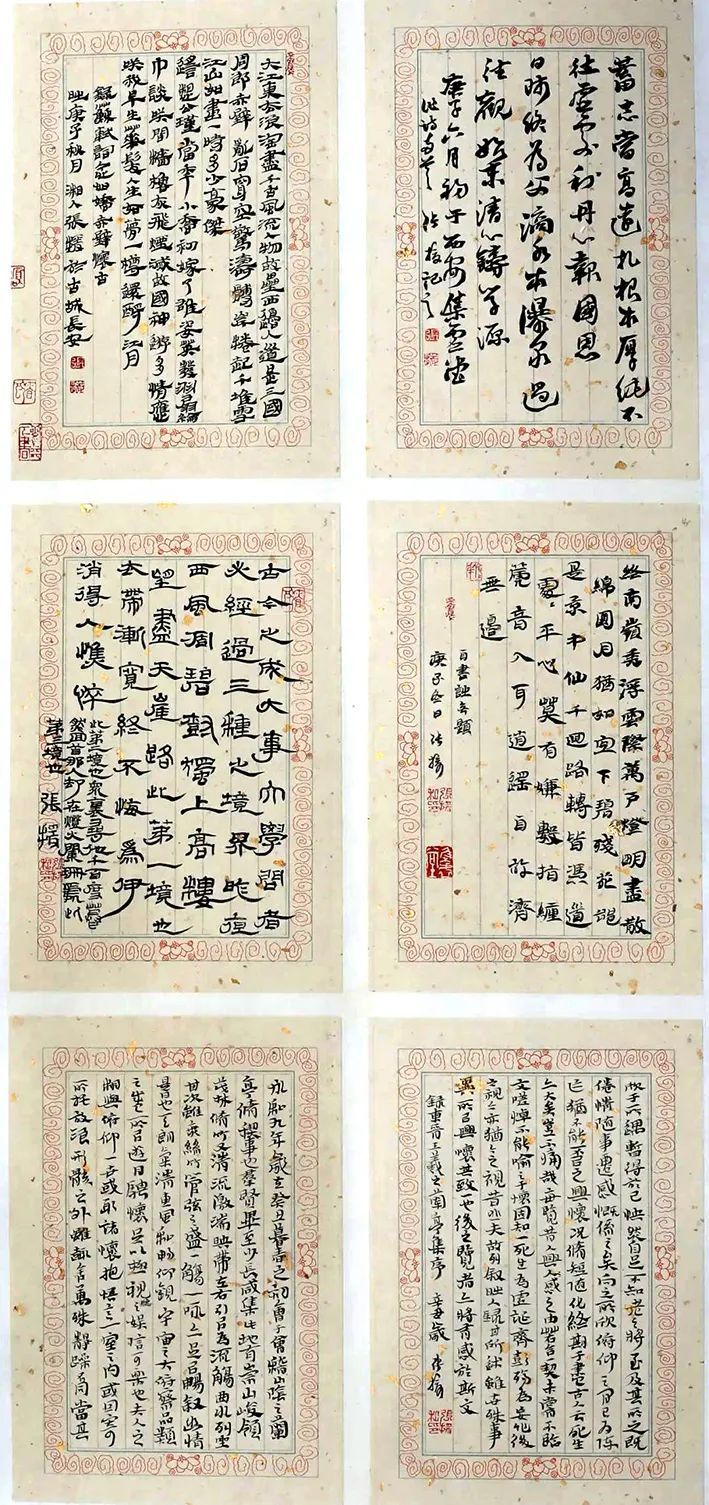 大江東去浪淘盡千古風流人物故壘西邊人道是三國
周郎赤壁亂石穿空驚濤拍岸捲起千堆雪
江山如畫一時多少豪傑
遙想公瑾當年小喬初嫁了雄姿英發羽扇綸
巾談笑間檣櫓灰飛煙滅故國神遊多情應
笑我早生華髮人生如夢一樽還酹江月
錄蘇軾詞念奴嬌赤壁懷古
時庚子秋月湘人張援於古城長安
蓄志當高遠扎根本厚純不
往虛利丹心報國恩
日終為父滴水瀑泉過
往觀始末清心鑄學源
庚子六月初于西安集雲堂
張援記之
古今之成大事大學問者
必經過三種之境界昨夜
西風凋碧樹獨上高樓
望盡天崖路此第一境也
衣帶漸寬終不悔為伊
消得人憔悴
此第二境也衆裏尋他千百度驀
然回首那人却在燈火闌珊處此
第三境也 張援
終南嶺秀浮雲際萬戶燈明盡散
綿圓月猶如空下碧殘花
是京中仙千迴路轉皆馮道
處平心莫有嫌擊指纏
音入耳逍遙自
無邊
庚子冬日 張援
永和九年歲在癸丑暮春之初會于會稽山陰之蘭
亭脩禊事也羣賢畢至少長咸集此地有崇山峻領
茂林脩竹又清流激湍映帶左右引以為流觴曲水列坐
其次雖無絲竹管弦之盛一觴一詠亦足以暢敘幽情
是日也天朗氣清惠風和暢仰觀宇宙之大俯察品類
之盛所以遊目騁懷足以極視聽之娛信可樂也夫人之
相與俯仰一世或取諸懷抱悟言一室之內或因寄
所託放浪形骸之外雖趣舍萬殊靜躁不同當其
欣于所遇暫得於己怏然自足不知老之將至及其所之既
倦情隨事遷感慨係之矣向之所欣俯仰之間已為陳
迹猶不能不以之興懷況脩短隨化終期于盡古人云死生
亦大矣豈不痛哉每覽昔人興感之由若合一契未嘗不臨
文嗟悼不能喻之于懷固知一死生為虛誕齊彭殤為妄作後
之視今亦猶今之視昔悲夫故列敘時人錄其所述雖世殊事
異所以興懷其致一也後之覽者亦將有感於斯文
錄東晉王羲之蘭亭集序 辛丑歲 張援